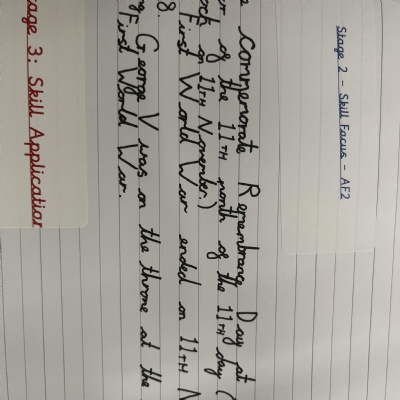 Stage 2 - Skill Focus - AF2
commemorate Remembrance Day at
of the 11TH month of the 11TH day (
on 11TH November.)
First World War ended on 11TH N
8.
George V was on the throne at the
First World War.
age 3: Skill Application